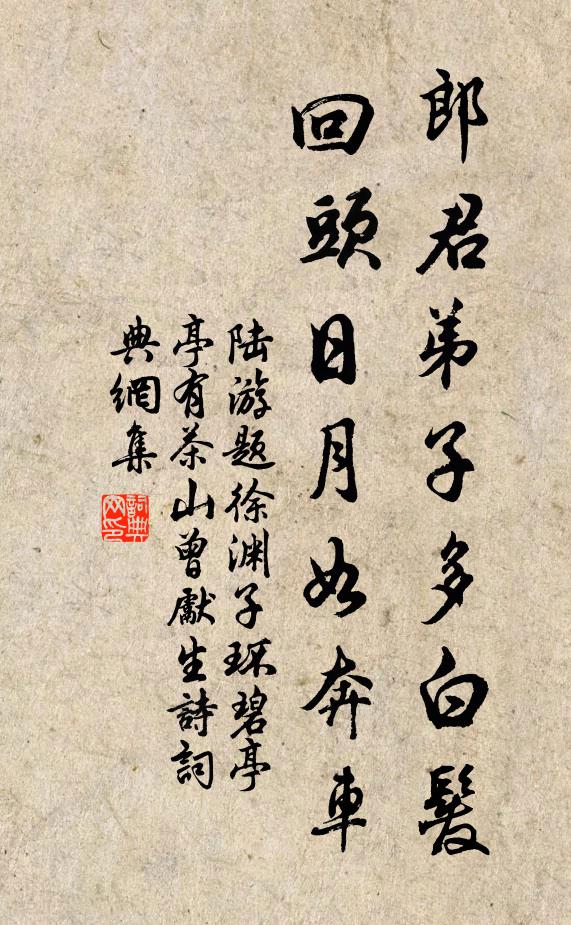 郎君弟子多白髮
回頭日月如奔車
陆游題徐渊子环碧亭
亭有茶山曾獻生詩詞
典網集
詞典网印